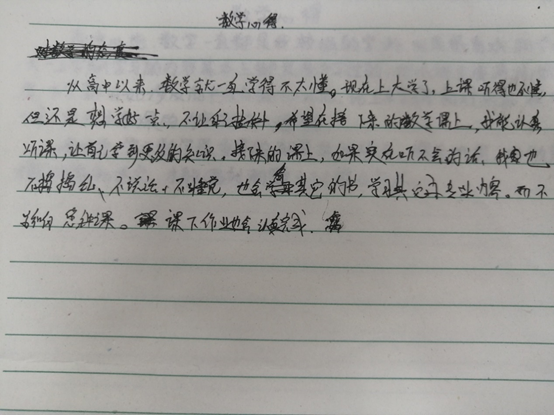 数学心得.
从高中以来,数学就一直学得不太懂。现在上大学了,上课听得也不懂,
但还是想学好一点,不让积挂科,希望在接下来的数学课上,我能认真
听课,让自己学到更多的知识。接下来的课上,如果实在听不会的话,我自也
不捣乱、不说话、不睡觉,也会看其它的书,学习其它专业内容。而不
为和课。课下作业也会认真完成.